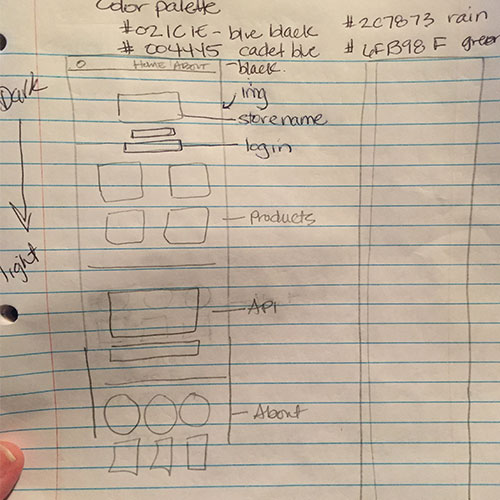 Color palette
#021C1E - blue black #2C7873 rain
# 004445 cadet blue # 6FB98F green
HOME ABOUT - black.
Dark
img
storename
login
Products
light
API
About